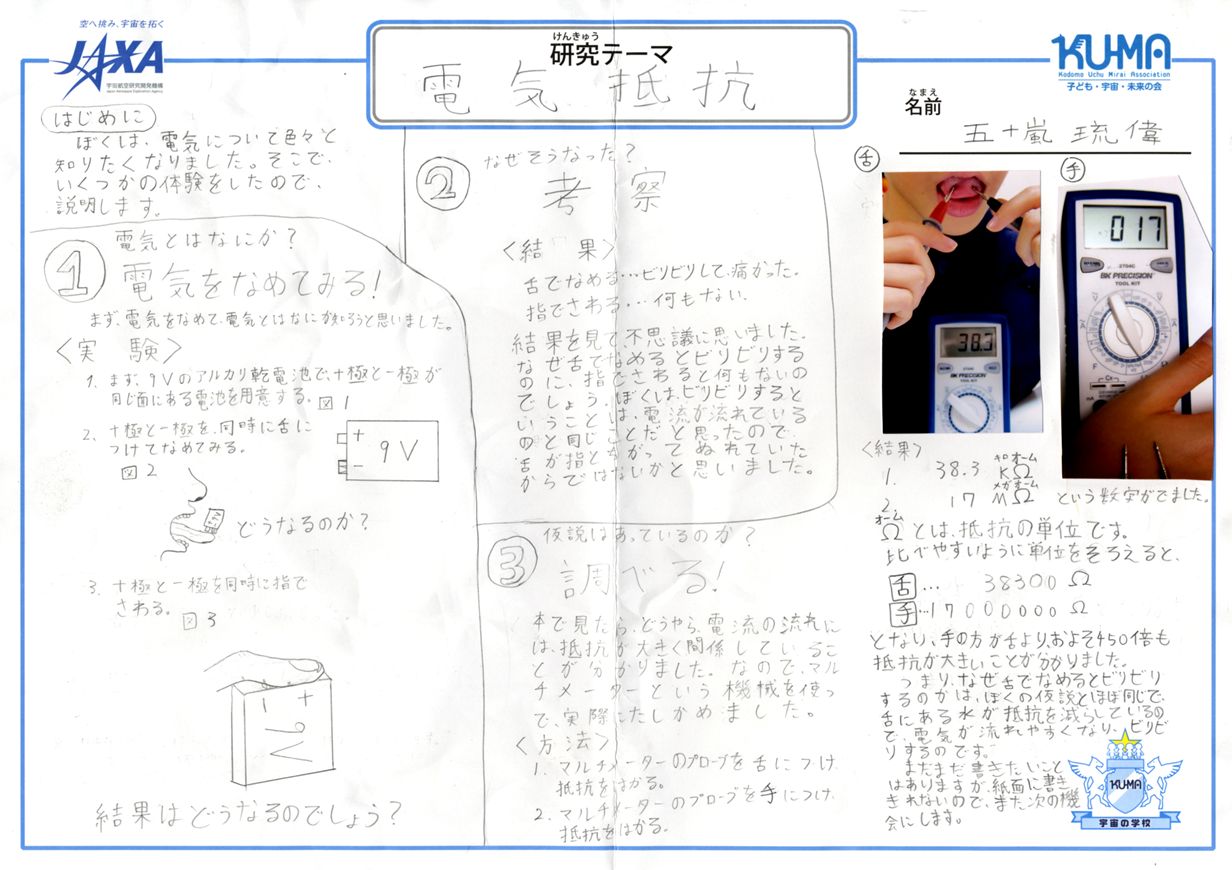 空へ挑み、宇宙を拓く
JAXA
宇宙航空研究開発機構
Japan Aerospace Exploration Agency
けんきゅう
研究テーマ
電気抵抗
KU-MA
Kodomo Uchu Mirai Association
子ども・宇宙・未来の会
なまえ
名前
五十嵐 琉偉
はじめに
ぼくは、電気について色々と
知りたくなりました。そこで、
いくつかの体験をしたので、
説明します。
1 電気とはなにか?
電気をなめてみる!
まず、電気をなめて、電気とはなにか知ろうと思いました。
<実 験>
1. まず、9Vのアルカリ乾電池で、+極と-極が
同じ面にある電池を用意する。図1
2、+極と-極を、同時に舌に
つけてなめてみる。
図2
+
-
9V
9V
どうなるのか?
3. +極と-極を同時に指で
さわる。 図3
- +
9V
結果はどうなるのでしょう?
2 なぜそうなった?
考 察
<結 果>
舌でなめる…ビリビリして、痛かった。
指でさわる…何もない、
結果を見て、不思議に思いました。
なぜ舌でなめるとビリビリする
のに、指でさわると何もないの
でしょう。ぼくは、ビリビリすると
いうことは、電流が流れている
のと同じことだと思ったので、
舌が指とちがってぬれていた
からではないかと思いました。
3 仮説はあっているのか?
調べる!
本で見たら、どうやら、電流の流れに
は、抵抗が大きく関係しているこ
とが分かりました。なので、マル
チメーターという機械を使っ
て、実際にたしかめました。
<方法>
1. マルチメーターのプローブを舌につけ、
抵抗をはかる。
2. マルチメーターのプローブを手につけ、
抵抗をはかる。
舌
手
38.3
BK PRECISION
TOOL KIT
017
2704C
BK PRECISION
TOOL KIT
<結果>
1. 38.3 KΩ
キロオーム
2. 17 MΩ という数字がでました。
メガオーム
オーム
Ωとは、抵抗の単位です。
比べやすいように単位をそろえると、
舌… 38300 Ω
手…17000000 Ω
となり、手の方が舌より、およそ450倍も
抵抗が大きいことが分かりました。
つまり、なぜ舌でなめるとビリビリ
するのかは、ぼくの仮説とほぼ同じで、
舌にある水が抵抗を減らしているの
で、電気が流れやすくなり、ビリビ
リするのです。
まだまだ書きたいこと
はありますが、紙面に書き
きれないので、また次の機
会にします。
KUMA
宇宙の学校